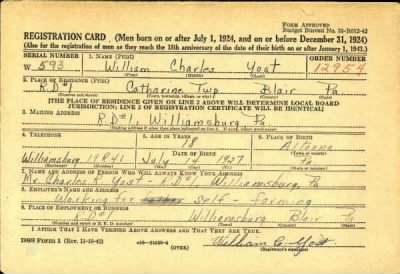 FORM APPROVED
Budget Bureau No. 33-R012-42
REGISTRATION CARD (Men born on or after July 1, 1924, and on or before December 31, 1924)
(Also for the registration of men as they reach the 18th anniversary of the date of their birth on or after January 1, 1943.)
SERIAL NUMBER 1. NAME (Print) ORDER NUMBER
W 593 William Charles Yost 12954
(First) (Middle) (Last)
2. PLACE OF RESIDENCE (Print)
R.D#1 Catharine Twp. Blair Pa
(Number and street) (Town, township, village, or city) (County) (State)
[THE PLACE OF RESIDENCE GIVEN ON LINE 2 ABOVE WILL DETERMINE LOCAL BOARD
JURISDICTION; LINE 2 OF REGISTRATION CERTIFICATE WILL BE IDENTICAL]
3. MAILING ADDRESS
R.D#1, Williamsburg Pa
[Mailing address if other than place indicated on line 2. If same, insert word same]
4. TELEPHONE 5. AGE IN YEARS 6. PLACE OF BIRTH
18 Altoona
DATE OF BIRTH (Town or county)
Williamsburg July 14 1927 Pa
(Exchange) (Number) (Mo.) (Day) (Yr.) (State or country)
7. NAME AND ADDRESS OF PERSON WHO WILL ALWAYS KNOW YOUR ADDRESS
Mr. Charles H Yost - R.D#1 Williamsburg, Pa
8. EMPLOYER'S NAME AND ADDRESS
Working for father self - farming
9. PLACE OF EMPLOYMENT OR BUSINESS
R.D#1 Williamsburg Blair Pa
(Number and street or R. F. D. number) (Town) (County) (State)
I AFFIRM THAT I HAVE VERIFIED ABOVE ANSWERS AND THAT THEY ARE TRUE.
DSS Form 1 (Rev. 11-16-42) (OVER) William C. Yost
(Registrant's signature)